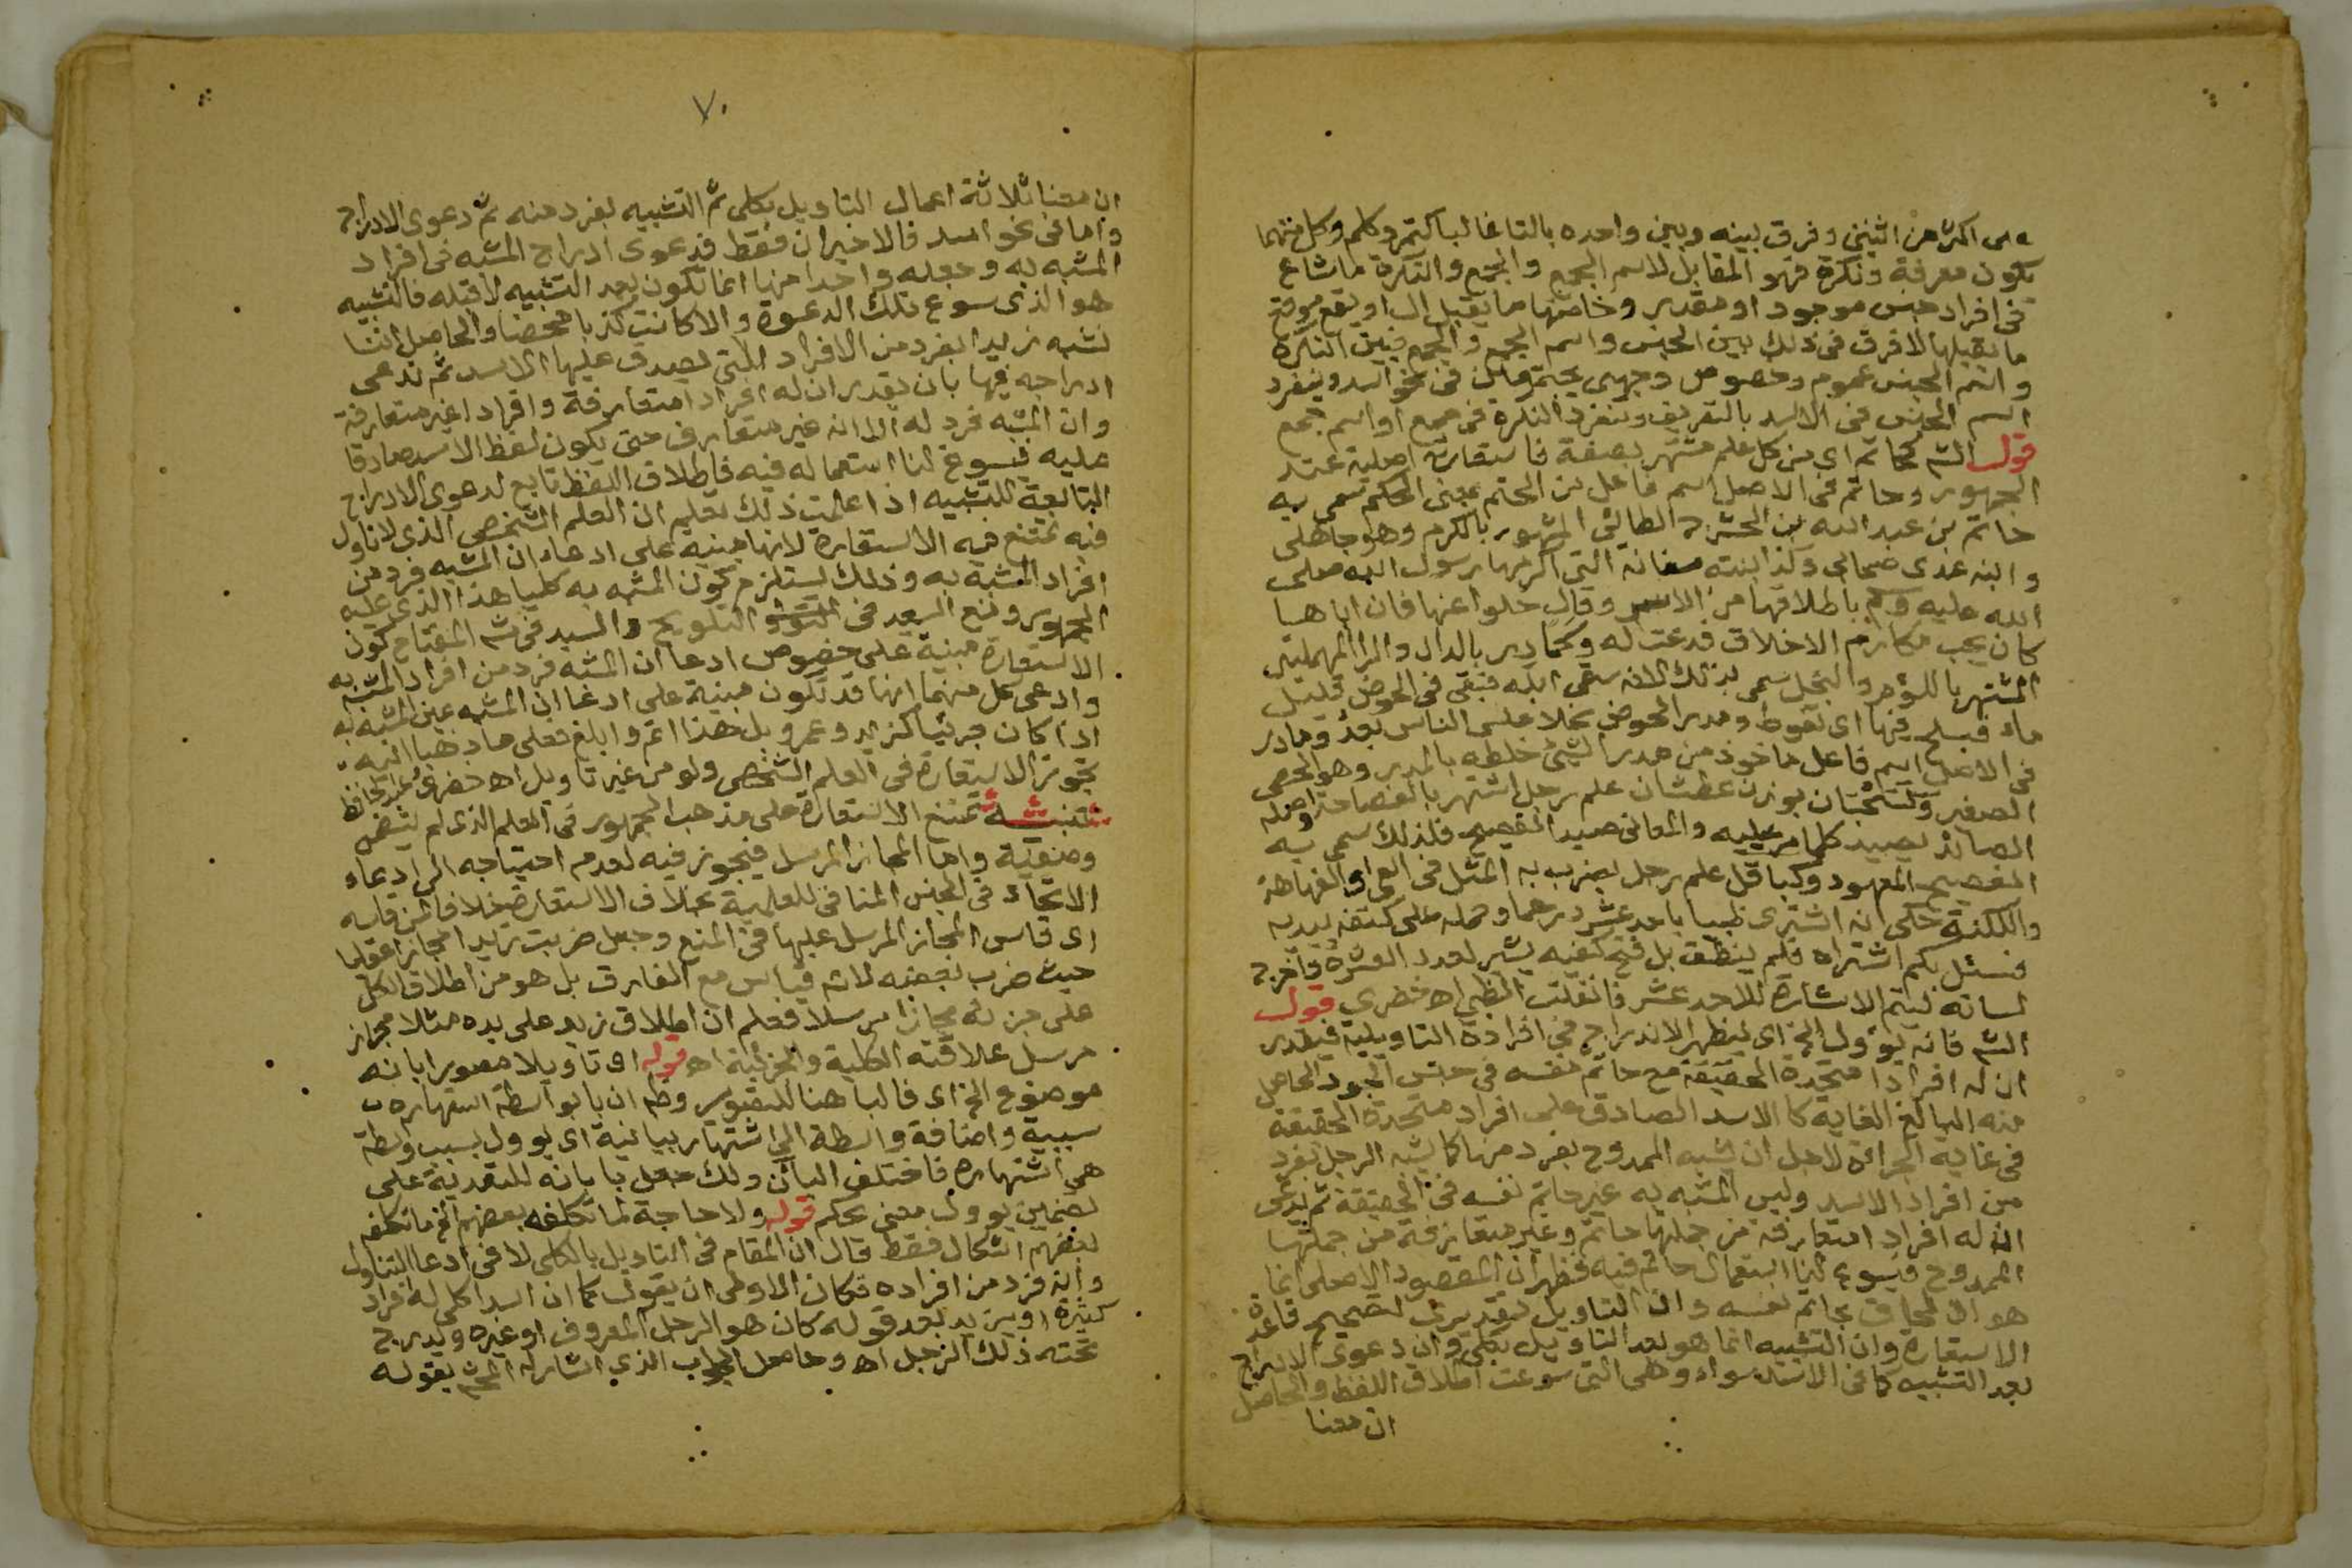 على اكثر من اثنين وفرق بينه وبين واحده بالتا غالبا كتمر وكلم وكل منهما
يكون معرفة ونكرة فهو المقابل لاسم الجمع والجمع والنكرة ما شاع
فى افراد جنس موجود او مقدر وخاصتها ما يقبل ال او يقع موقع
ما يقبلها لا فرق فى ذلك بين الجنس واسم الجمع والجمع فبين النكرة
واسم الجنس عموم وخصوص وجهى يجتمعان فى نحو اسد وينفرد
اسم الجنس فى الاسد بالتعريف وتنفرد النكرة فى جمع او اسم جمع
قوله الشم كحاتم اى من كل علم مشتهر بصفة فاستعارته اصلية عند
الجمهور وحاتم فى الاصل اسم فاعل من الحتم بمعنى الحكم سمى به
حاتم بن عبد الله بن الحشرج الطائى المشهور بالكرم وهو جاهلى
وابنه عدى صحابى وكذا بنته سفانة التى اكرمها رسول الله صلى
الله عليه وم باطلاقها من الاسر وقال خلوا عنها فان اباها
كان يحب مكارم الاخلاق فدعت له وكمادر بالدال والرا المهملتين
المشتهر باللؤم والبخل سمى بذلك لانه سقى ابله فبقى فى الحوض قليل
ماء فسلح فيها اى تغوط ومدر الحوض بخلا على الناس بعد ومادر
فى الاصل اسم فاعل ماخوذ من مدر الشئ خلطه بالمدر وهو الحصى
الصغير وكسحبان بوزن عطشان علم رجل اشتهر بالفصاحة واصله
الصائد يصيد كلما مر عليه والمعانى صيد الفصيح فلذلك سمى به
الفصيح المعهود وكباقل علم رجل يضرب به المثل فى العى والفهاهة
واللكنة حكى انه اشترى ظبيا باحد عشر درهما وحمله على كتفه بيديه
فسئل بكم اشتراه فلم ينطق بل فتح كفيه يشير لعدد العشرة واخرج
لسانه ليتم الاشارة للاحد عشر فانفلت الظبى اه خضرى قوله
الشم فانه يؤول الخ اى ليظهر الاندراج فى افراده التاويلية فيقدر
ان له افرادا متحدة الحقيقة مع حاتم نفسه فى جنس الجود الحاصل
منه البالغ الغاية كالاسد الصادق على افراد متحدة الحقيقة
فى غاية الجراءة لاجل ان يشبه الممدوح بفرد منها كما يشبه الرجل بفرد
من افراد الاسد وليس المشبه به غير حاتم نفسه فى الحقيقة ثم يدعى
ان له افراد امتعارفة من جملتها حاتم وغير متعارفة من جملتها
الممدوح فيسوغ لنا استعمال حاتم فيه فظهر ان المقصود الاصلى انما
هو الالحاق بحاتم نفسه وان التاويل تقديرى لتصحيح قاعدة
الاستعارة وان التشبيه انما هو بعد التاويل بكلى وان دعوى الادراج
بعد التشبيه كما فى الاسد سواء وهى التى سوغت اطلاق اللفظ والحاصل
ان معنا
٧٠
ان معنا ثلاثة اعمال التاويل بكلى ثم التشبيه بفرد منه ثم دعوى الادراج
واما فى نحو اسد فالاخيران فقط فدعوى ادراج المشبه فى افراد
المشبه به وجعله واحدا منها انما تكون بعد التشبيه لا قبله فالتشبيه
هو الذى سوغ تلك الدعوة والا كانت كذبا محضا والحاصل اننا
نشبه زيدا بفرد من الافراد التى يصدق عليها الاسد ثم ندعى
ادراجه فيها بان يقدر ان له افرادا متعارفة وافرادا غير متعارفة
وان المشبه فرد له الا انه غير متعارف حتى يكون لفظ الاسد صادقا
عليه فيسوغ لنا استعماله فيه فاطلاق اللفظ تابع لدعوى الادراج
التابعة للتشبيه اذا علمت ذلك تعلم ان العلم الشخصى الذى لا تاول
فيه تمتنع فيه الاستعارة لانها مبنية على ادعاء ان المشبه فرد من
افراد المشبه به وذلك يستلزم كون المشبه به كليا هذا الذى عليه
الجمهور ومنع السعد فى التلويح والسيد فى شم المفتاح كون
الاستعارة مبنية على خصوص ادعا ان المشبه فرد من افراد المشبه به
وادعى كل منهما انها قد تكون مبنية على ادعا ان المشبه عين المشبه به
اذا كان جزئيا كزيد وعمرو بل هذا اتم وابلغ فعلى ما ذهبا اليه
تجوز الاستعارة فى العلم الشخصى ولو من غير تاويل اه حفرى عبد الحافظ
تنبيه تمتنع الاستعارة على مذهب الجمهور فى العلم الذى لم يتضمن
وصفية واما المجاز المرسل فيجوز فيه لعدم احتياجه الى ادعاء
الاتحاد فى الجنس المنافى للعلمية بخلاف الاستعارة خلافا لمن قاسه
اى قاس المجاز المرسل عليها فى المنع وجعل ضربت زيدا مجازا عقليا
حيث ضرب بعضه لانه قياس مع الفارق بل هو من اطلاق الكل
على جزئه مجازا مرسلا فعلم ان اطلاق زيد على يده مثلا مجاز
مرسل علاقته الكلية والجزئية اه قوله اى تاويلا مصورا بانه
موضوع الخ اى فالبا هنا للتصوير وظم ان با بواسطة اشتهاره
سببية واضافة واسطة الى اشتهار بيانية اى يوول بسبب واسطة
هى اشتهاره فاختلف الباآن ولك جعل با بانه للتعدية على
تضمين يوول معنى يحكم قوله ولا حاجة لما تكلفه بعضهم الخ ما تكلفه
بعضهم اشكال فقط قال ان المقام فى التاويل بالكلى لا فى ادعا التناول
وانه فرد من افراده فكان الاولى ان يقول كما ان اسدا كلى له افراد
كثيرة او يزيد بعد قوله كان هو الرجل المعروف او غيره ويدرج
تحته ذلك الرجل اه وحاصل الجواب الذى اشار له المحشى بقوله